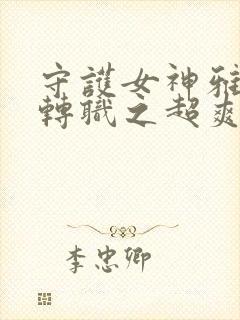 守護女神雅
轉職之超爽
李忠卿